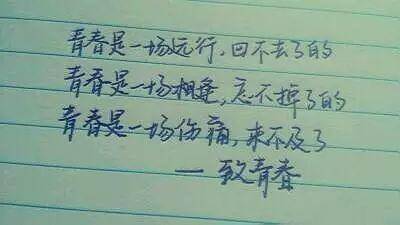 青春是一场远行,回不去了的
青春是一场相逢,忘不掉了的
青春是一场伤痛,来不及了
—致青春